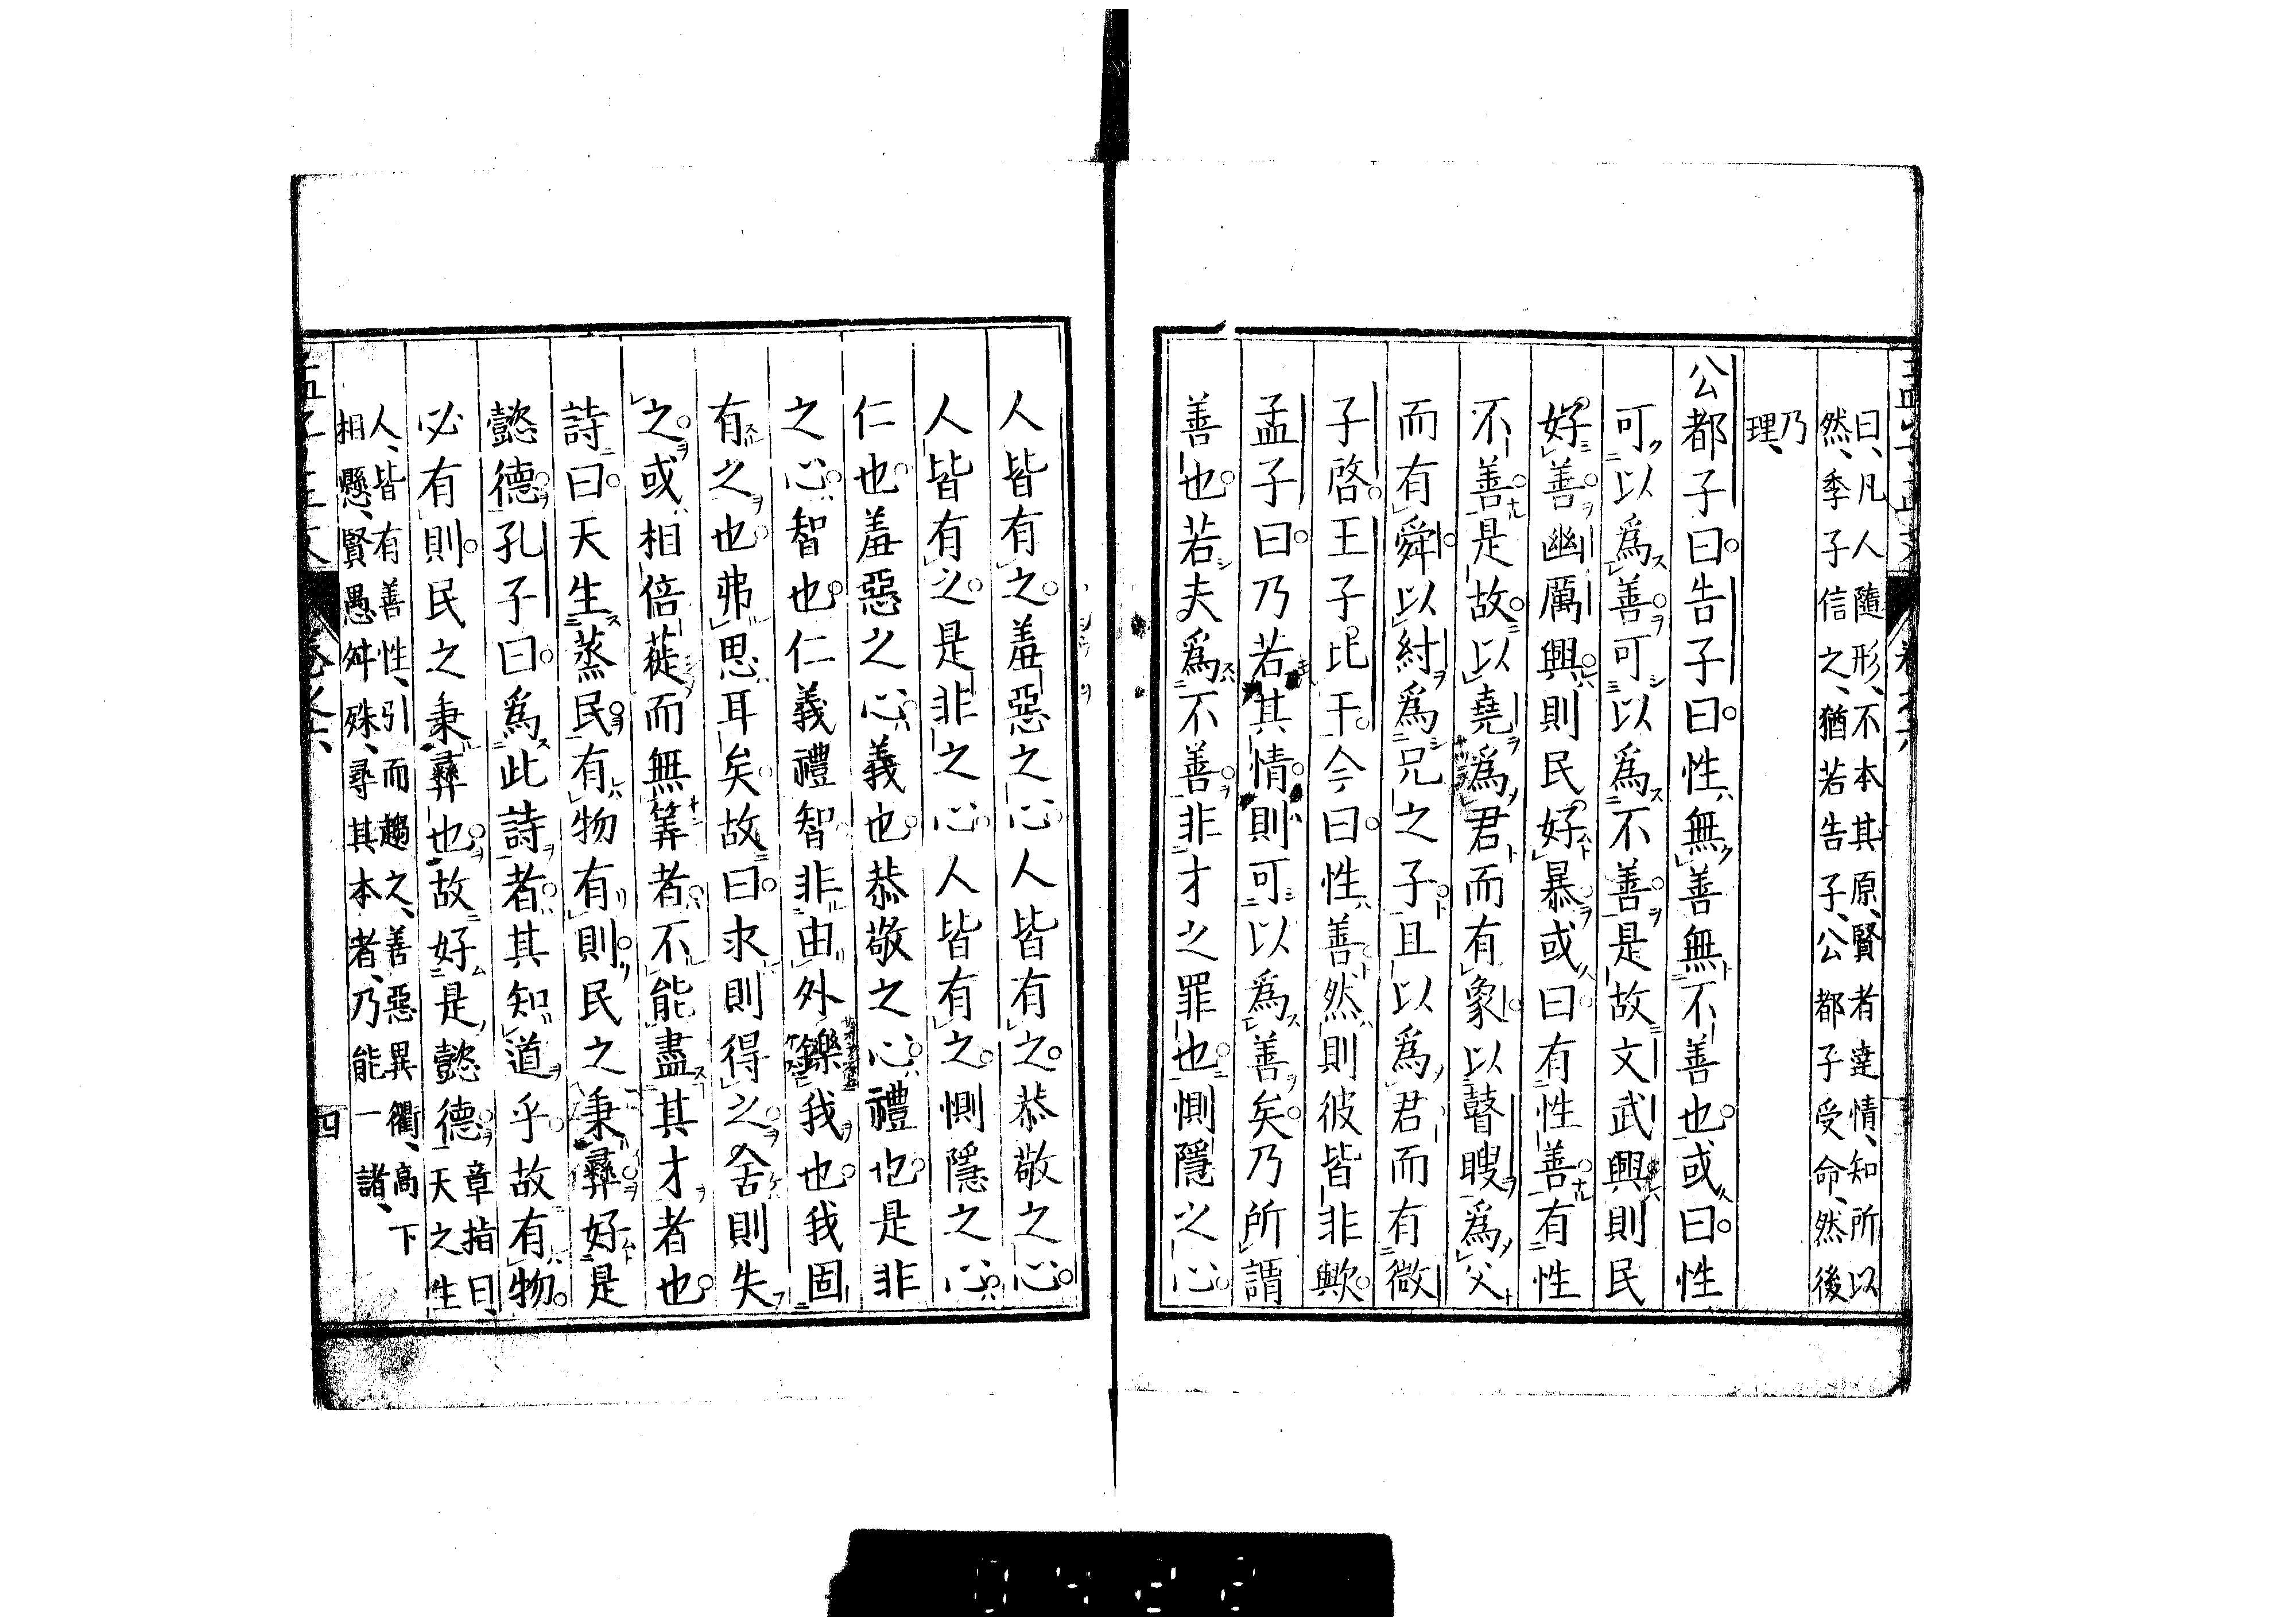 曰、凡人隨形、不本其原、賢者達情、知所以
然、季子信之、猶若告子、公都子受命、然後
乃
理、
公都子曰告子曰性無善無不善也或曰性
可以爲善可以爲不善是故文武興則民
好善幽厲興則民好暴或曰有性善有性
不善是故以堯爲君而有象以瞽瞍爲父
而有舜以紂爲兄之子且以爲君而有微
子啓王子比干今曰性善然則彼皆非歟
孟子曰乃若其情則可以爲善矣乃所謂
善也若夫爲不善非才之罪也惻隱之心
人皆有之羞惡之心人皆有之恭敬之心
人皆有之是非之心人皆有之惻隱之心
仁也羞惡之心義也恭敬之心禮也是非
之心智也仁義禮智非由外鑠我也我固
有之也弗思耳矣故曰求則得之舍則失
之或相倍蓰而無筭者不能盡其才者也
詩曰天生蒸民有物有則民之秉彝好是
懿德孔子曰爲此詩者其知道乎故有物
必有則民之秉彝也故好是懿德
章指曰、
天之生
人、皆有善性、引而趨之、善惡異衢、高下
相懸、賢愚舛殊、尋其本者、乃能一諸、
四